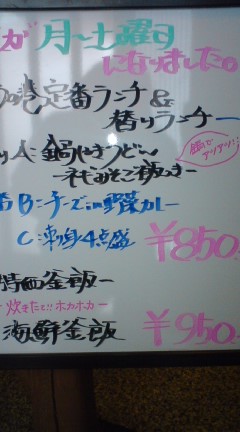 が 月〜土曜す
になりました。
定番ランチ &
替りランチー
A: 鍋やきうどん
アツアツ!!
B: チーズin野菜カレー
C: 刺身4点盛
¥850
特価釜飯ー
炊きたて!! ホカホカー
海鮮釜飯 ¥950